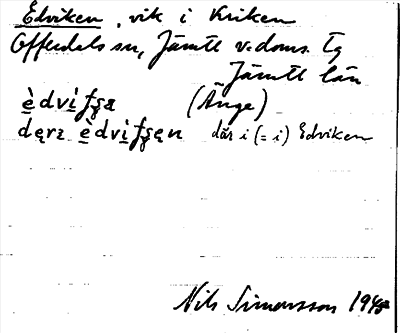 Edviken, vik i Kriken
Offerdals sn, Jämtl v. doms. Tg
Jämtl län
è̱dvi̱fʂa (Änge)
dęrɪ è̱dvi̱fʂęn där i (= i) Edviken
Nils Simonsson 1948